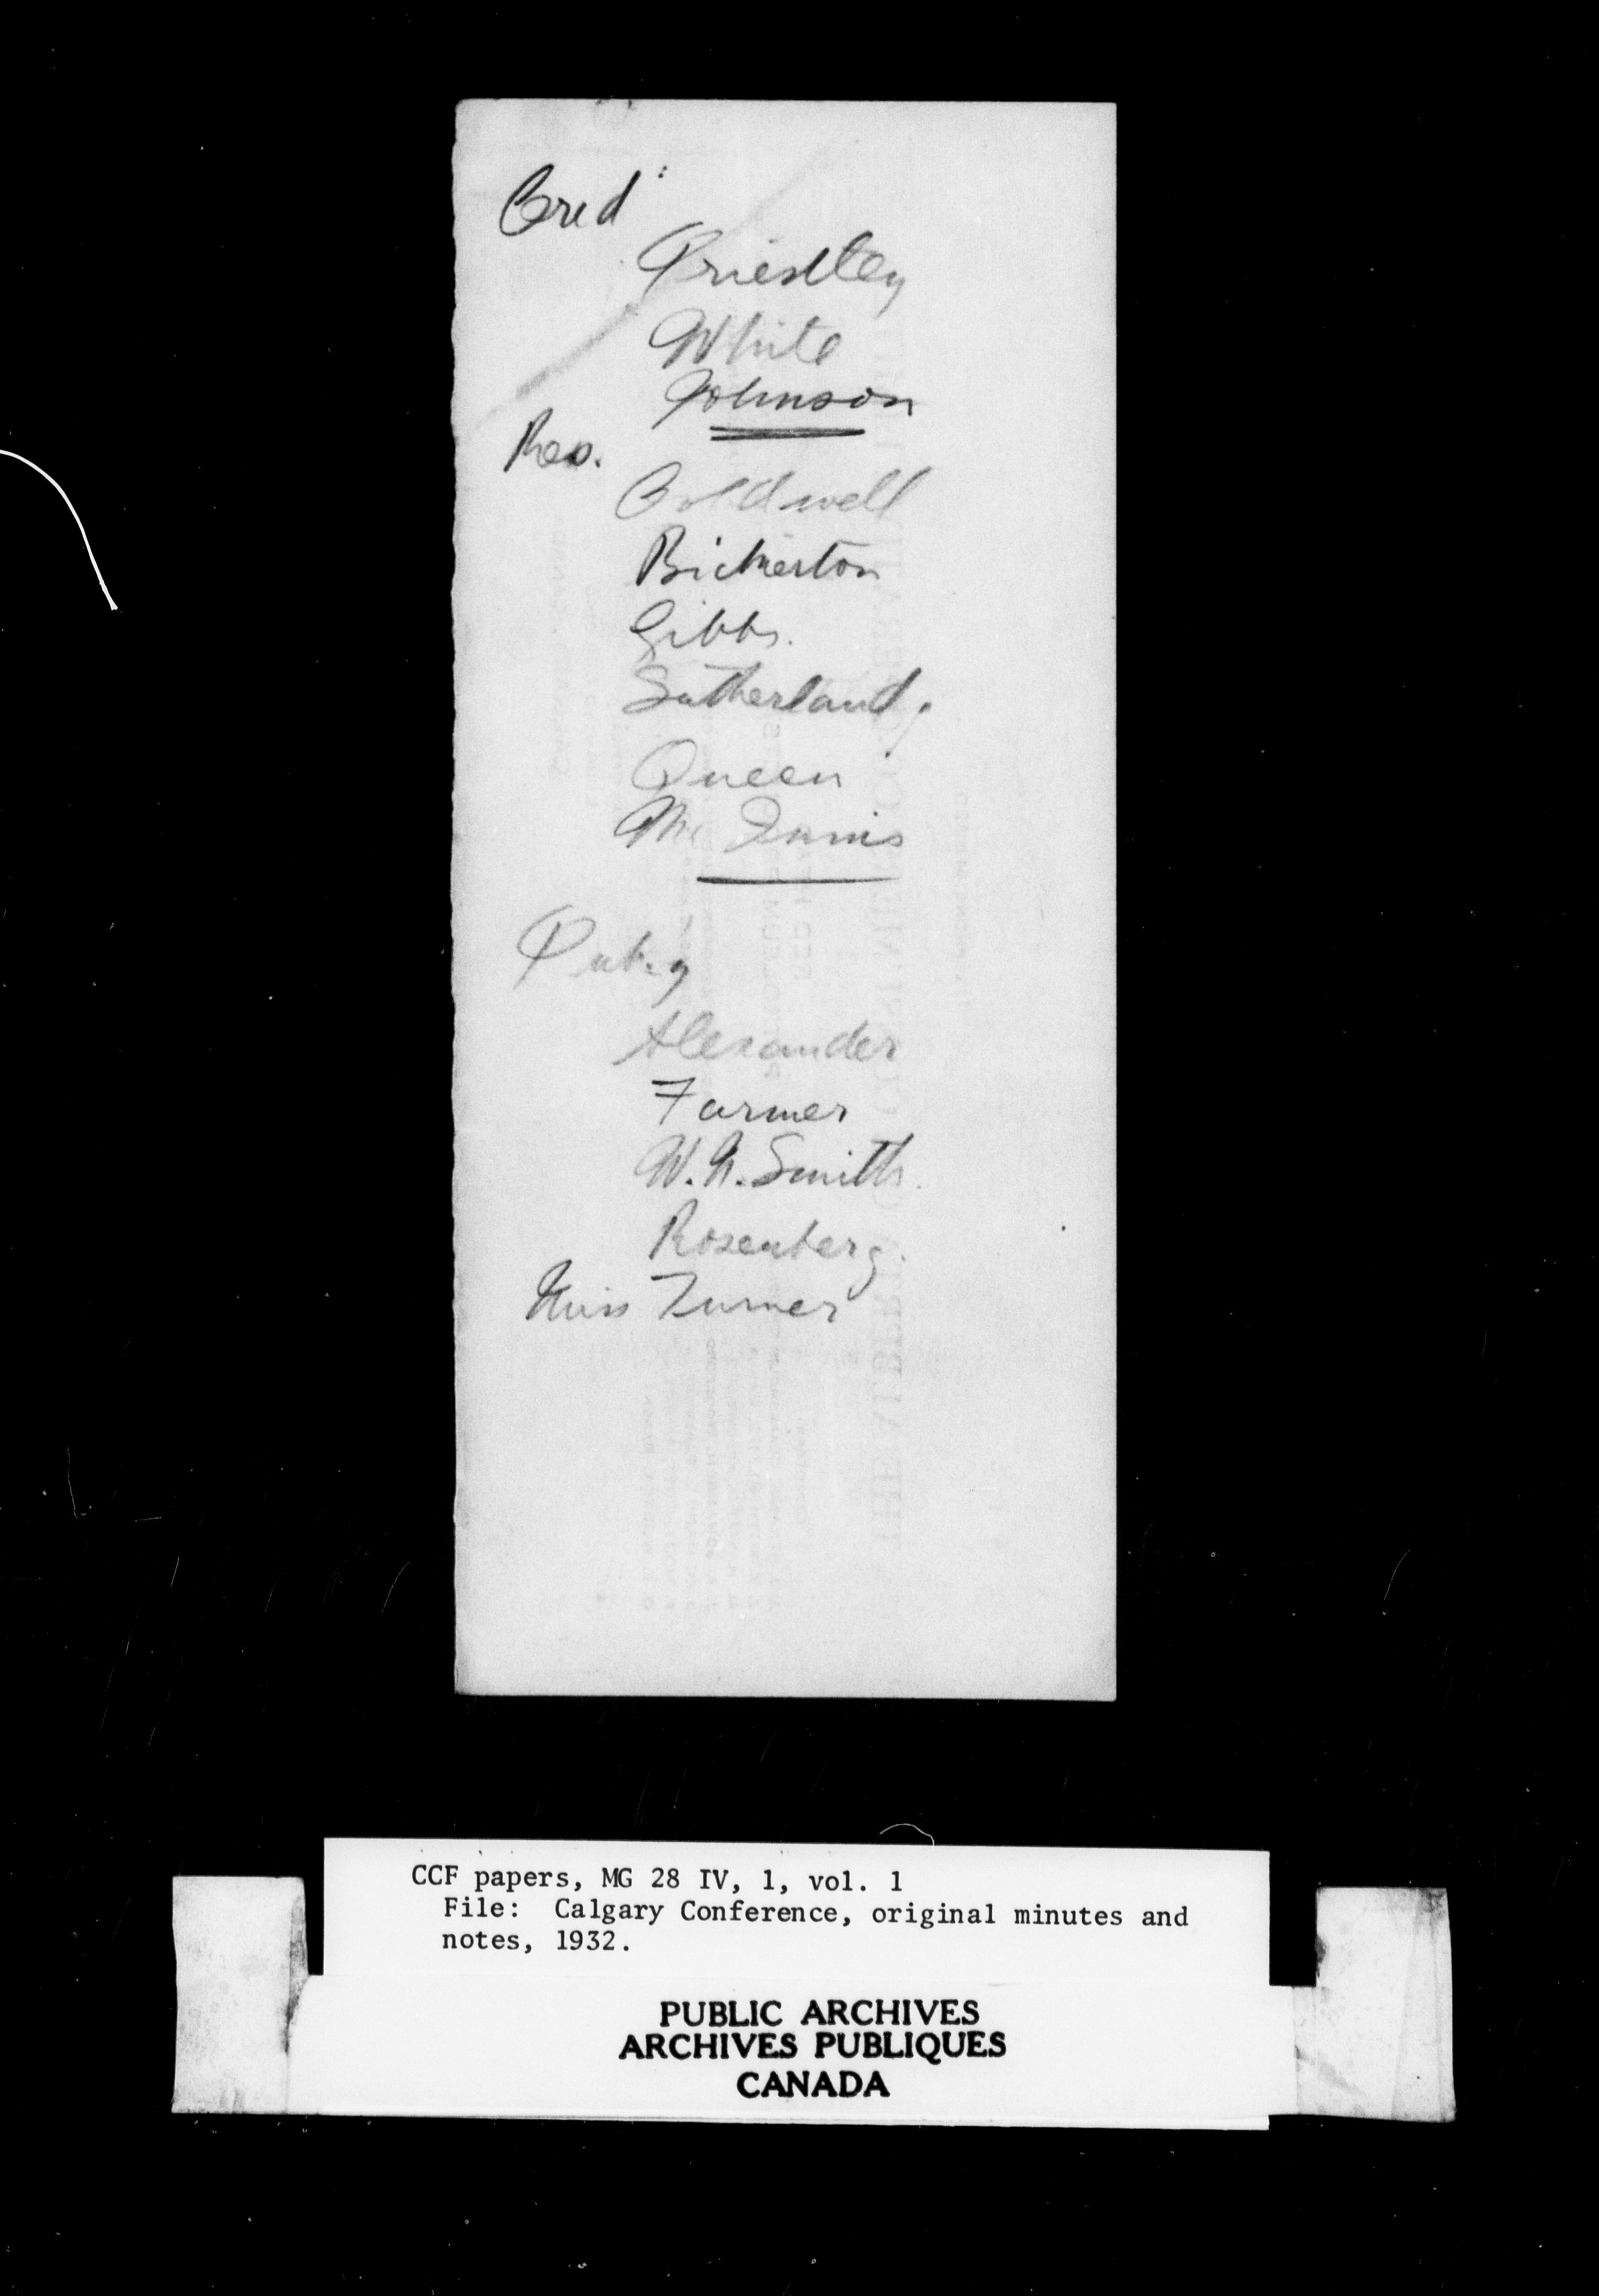 Cred:
Priestley
White
Johnson
Res.
Coldwell
Bickerton
Gibbs.
Sutherland,
Queen
Mc Innis
Pub.y
Alexander
Farmer
W.N. Smith.
Rosenberg.
Miss Turner
CCF papers, MG 28 IV, 1, vol. 1
File: Calgary Conference, original minutes and
notes, 1932.
PUBLIC ARCHIVES
ARCHIVES PUBLIQUES
CANADA